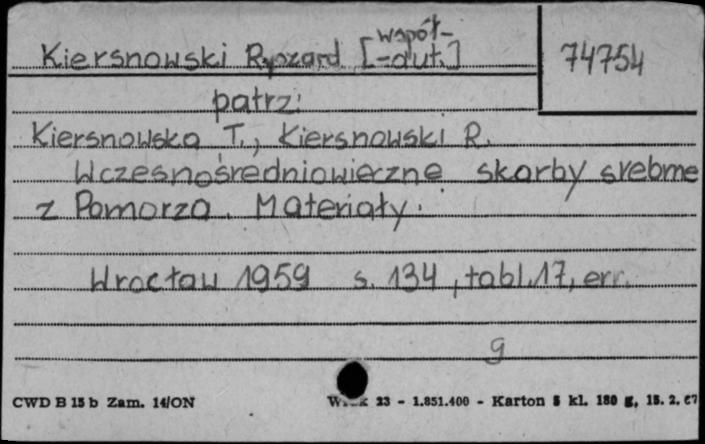 Kiersnowski Ryszard [współ-
-aut.]
74754
patrz:
Kiersnowska T., Kiersnowski R.
Wczesnośredniowieczne skarby srebrne
z Pomorza. Materiały.
Wrocław 1959 s. 134, tabl. 17, err.
g
CWD B 15 b Zam. 14/ON
23 - 1.851.400 - Karton 5 kl. 180 g, 15. 2. 67